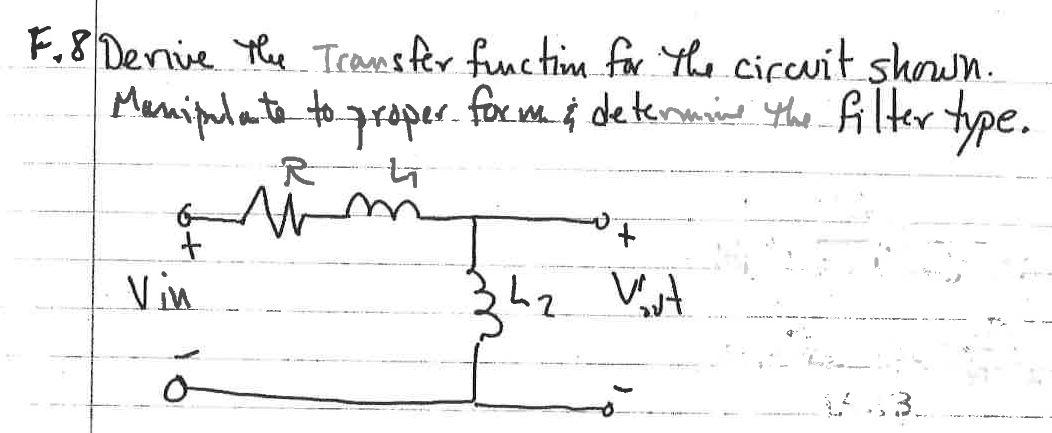 F.8 Derive the Transfer function for the circuit shown.
Manipulate to proper form & determine the filter type.
R L1
+ +
Vin L2 Vout
- -